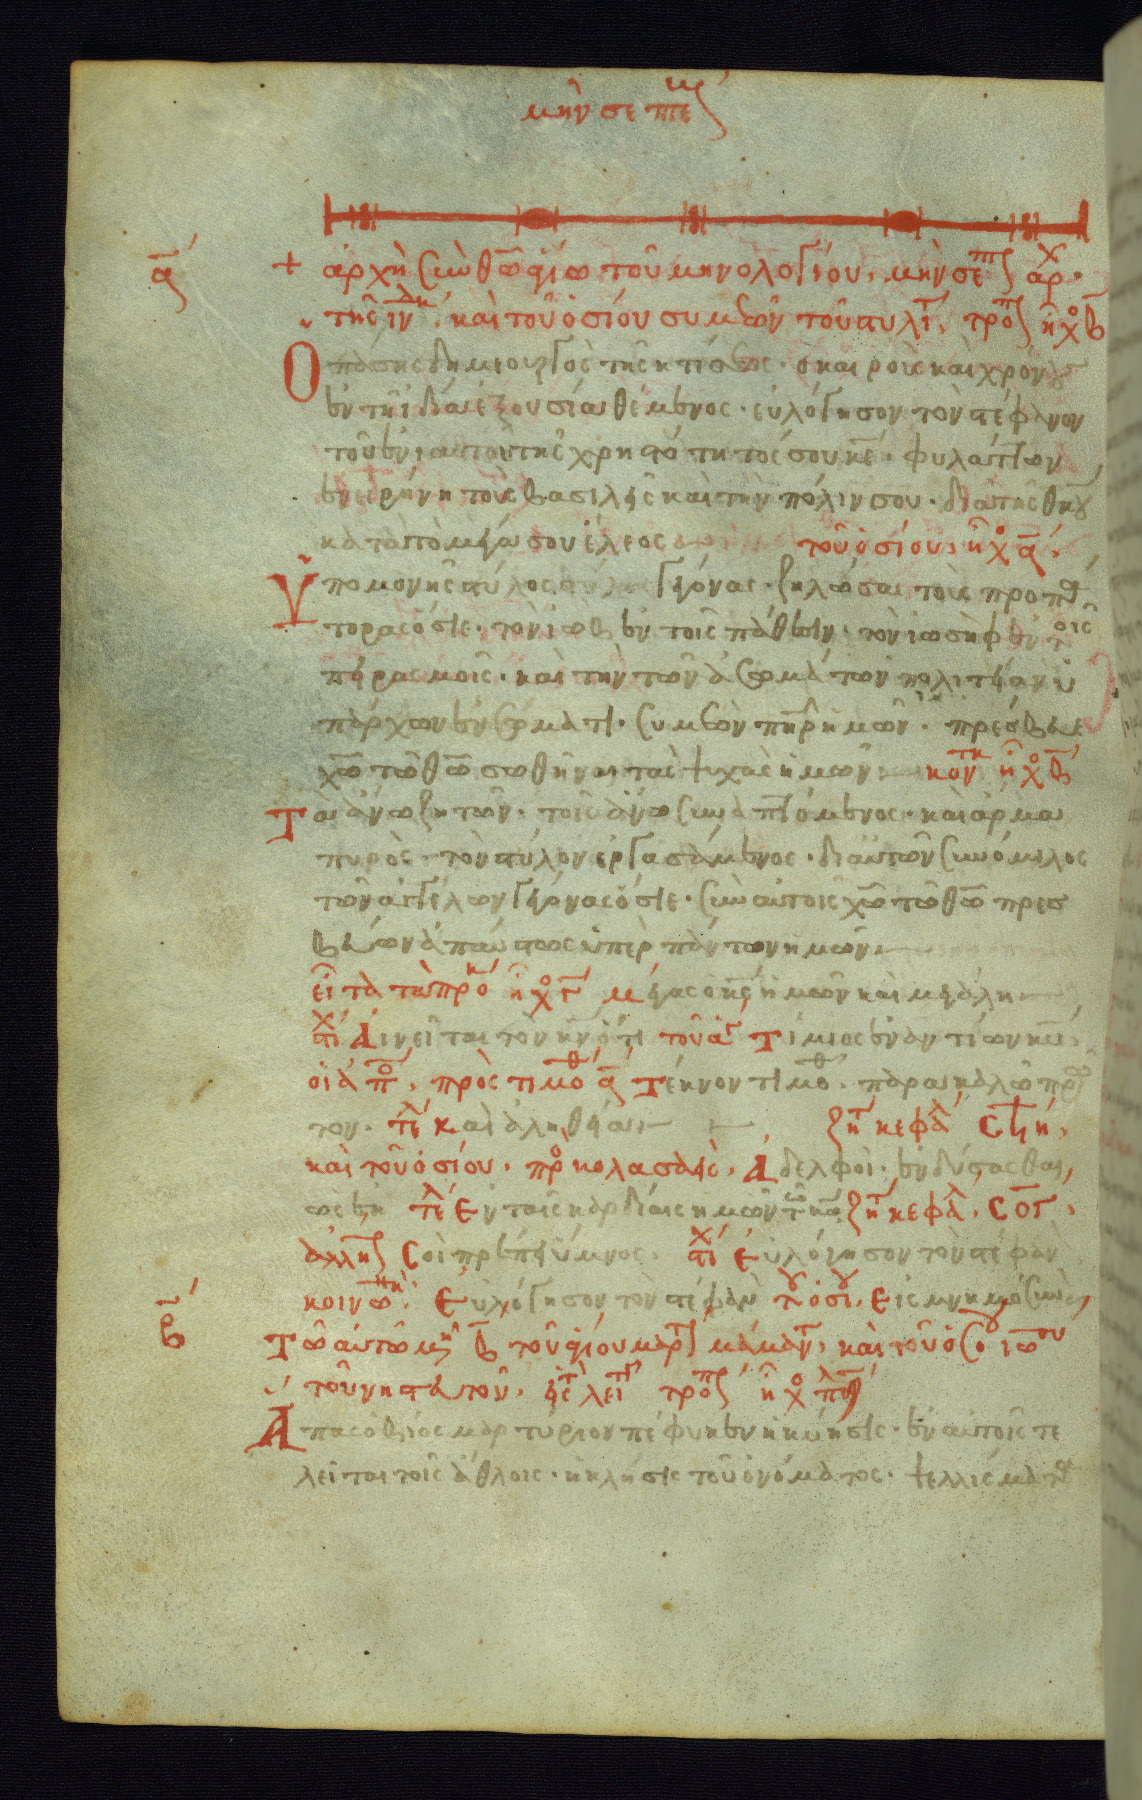 μην σεπτε
α
+ ἀρχὴ σὺν θῶ ἁγίω τοῦ μηνολογίου. μὴν σεπτ ἀρχ
τῆς ἰνδ. καὶ τοῦ ὁσίου συμεὼν τοῦ στυλίτ. τροπ ἦχο β
Ο πάσης δημιουργὸς τῆς κτίσεως. ὁ καιροὺς καὶ χρόνους
ἐν τῆ ἰδία ἐξουσία θέμενος. εὐλόγησον τὸν στέφανον
τοῦ ἐνιαυτοῦ τῆς χρηστότητός σου κε. φυλάττων
ἐν εἰρήνη τοὺς βασιλεῖς καὶ τὴν πόλιν σου. διὰ τῆς θκου
κατὰ τὸ μέγα σου ἔλεος τοῦ ὁσίου. ἦχο α.
Υπομονῆς στύλος γέγονας. ζηλώσας τοὺς προπά
τορας ὅσιε. τὸν ἰὼβ ἐν τοῖς πάθεσιν. τὸν ἰωσὴφ ἐν τοῖς
πειρασμοῖς. καὶ τὴν τῶν ἀσωμάτων πολιτείαν ὑ
πάρχων ἐν σώματι. συμεὼν πηρ ἡμῶν. πρέσβευε
χῶ τῶ θῶ σωθῆναι τὰς ψυχὰς ἡμῶν κοντ ἦχο β
Τὰ ἄνω ζητῶν. τοῖς ἄνω συναπτόμενος. καὶ ἅρμα
πυρὸς τὸν στύλον ἐργασάμενος. δι αὐτοῦ συνόμιλος
τῶν ἀγγέλων γέγονας ὅσιε. σὺν αὐτοῖς χῶ τῶ θῶ πρεσ
βεύων ἀπαύστως ὑπὲρ πάντων ἡμῶν
εἶτα τὸ προκ ἦχο γ Μέγας ὁ κς ἡμῶν καὶ μεγάλη
στι Αἰνεῖται τὸν κν ὅτι τοῦ ἁγ Τίμιος ἐναντίον κυ
ὁ ἀπο. πρὸς τιμοθ α Τέκνον τιμόθ. παρακαλῶ πρῶ
τον. τέλ καὶ ἀληθεία ζητ κεφαλ
καὶ τοῦ ὁσίου. προ κολασαεῖς. Ἀδελφοὶ. ἐνδύσασθαι
ὡς ἐκ τέλ Ἐν ταῖς καρδίαις ἡμῶν τῶ κω ζητ κεφαλ. σογ.
ἀλλη Σοὶ πρέπει ὕμνος. στιχ Εὐλόγησον τὸν στέφαν
κοινων. Εὐλόγησον τὸν στέφαν τοῦ ὁσίου. Εἰς μνημόσυν
β Τῶ αὐτῶ μη β τοῦ ἁγίου μαρτ μάμαντ. καὶ τοῦ ὁσίου ἰω
τοῦ νηστευτοῦ. τροπ ἦχο πλ
Απας ὁ βίος μαρτύριον πέφυκεν ἡ κύησις. ἐν αὐτοῖς τε
λεῖται τοῖς ἄθλοις. ἡ κλῆσις τοῦ ὀνόματος. ψελλίσματ